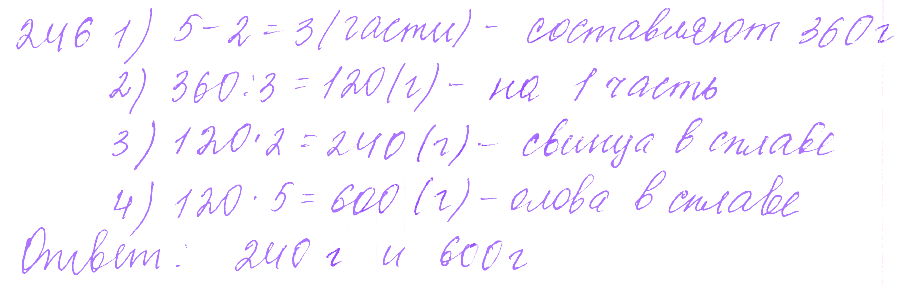 246 1) 5 - 2 = 3 (части) - составляют 360 г
2) 360 : 3 = 120 (г) - на 1 часть
3) 120 · 2 = 240 (г) - свинца в сплаве
4) 120 · 5 = 600 (г) - олова в сплаве
Ответ: 240 г и 600 г